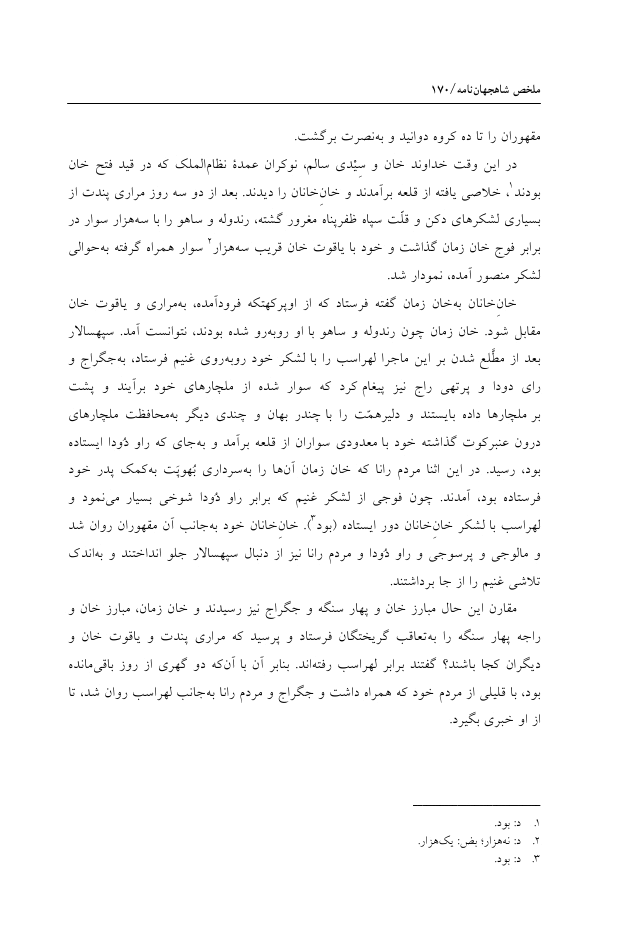 ملخص شاهجهان‌نامه/۱۷۰
مقهوران را تا ده کروه دوانید و به‌نصرت برگشت.
در این وقت خداوند خان و سیّدی سالم، نوکران عمدهٔ نظام‌الملک که در قید فتح خان
بودند۱، خلاصی یافته از قلعه برآمدند و خانِ‌خانان را دیدند. بعد از دو سه روز مراری پندت از
بسیاری لشکرهای دکن و قلّت سپاه ظفرپناه مغرور گشته، رندوله و ساهو را با سه‌هزار سوار در
برابر فوج خان زمان گذاشت و خود با یاقوت خان قریب سه‌هزار۲ سوار همراه گرفته به‌حوالی
لشکر منصور آمده، نمودار شد.
خانِ‌خانان به‌خان زمان گفته فرستاد که از اوپرکهتکه فرودآمده، به‌مراری و یاقوت خان
مقابل شود. خان زمان چون رندوله و ساهو با او روبه‌رو شده بودند، نتوانست آمد. سپهسالار
بعد از مطّلع شدن بر این ماجرا لهراسب را با لشکر خود روبه‌روی غنیم فرستاد، به‌جگراج و
رای دودا و پرتهی راج نیز پیغام کرد که سوار شده از ملچارهای خود برآیند و پشت
بر ملچارها داده بایستند و دلیرهمّت را با چندر بهان و چندی دیگر به‌محافظت ملچارهای
درون عنبرکوت گذاشته خود با معدودی سواران از قلعه برآمد و به‌جای که راو دُودا ایستاده
بود، رسید. در این اثنا مردم رانا که خان زمان آن‌ها را به‌سرداری بُهوپَت به‌کمک پدر خود
فرستاده بود، آمدند. چون فوجی از لشکر غنیم که برابر راو دُودا شوخی بسیار می‌نمود و
لهراسب با لشکر خانِ‌خانان دور ایستاده (بود۳). خانِ‌خانان خود به‌جانب آن مقهوران روان شد
و مالوجی و پرسوجی و راو دُودا و مردم رانا نیز از دنبال سپهسالار جلو انداختند و به‌اندک
تلاشی غنیم را از جا برداشتند.
مقارن این حال مبارز خان و پهار سنگه و جگراج نیز رسیدند و خان زمان، مبارز خان و
راجه پهار سنگه را به‌تعاقب گریختگان فرستاد و پرسید که مراری پندت و یاقوت خان و
دیگران کجا باشند؟ گفتند برابر لهراسب رفته‌اند. بنابر آن با آن‌که دو گهری از روز باقی‌مانده
بود، با قلیلی از مردم خود که همراه داشت و جگراج و مردم رانا به‌جانب لهراسب روان شد، تا
از او خبری بگیرد.
۱. د: بود.
۲. د: نه‌هزار؛ بض: یک‌هزار.
۳. د: بود.